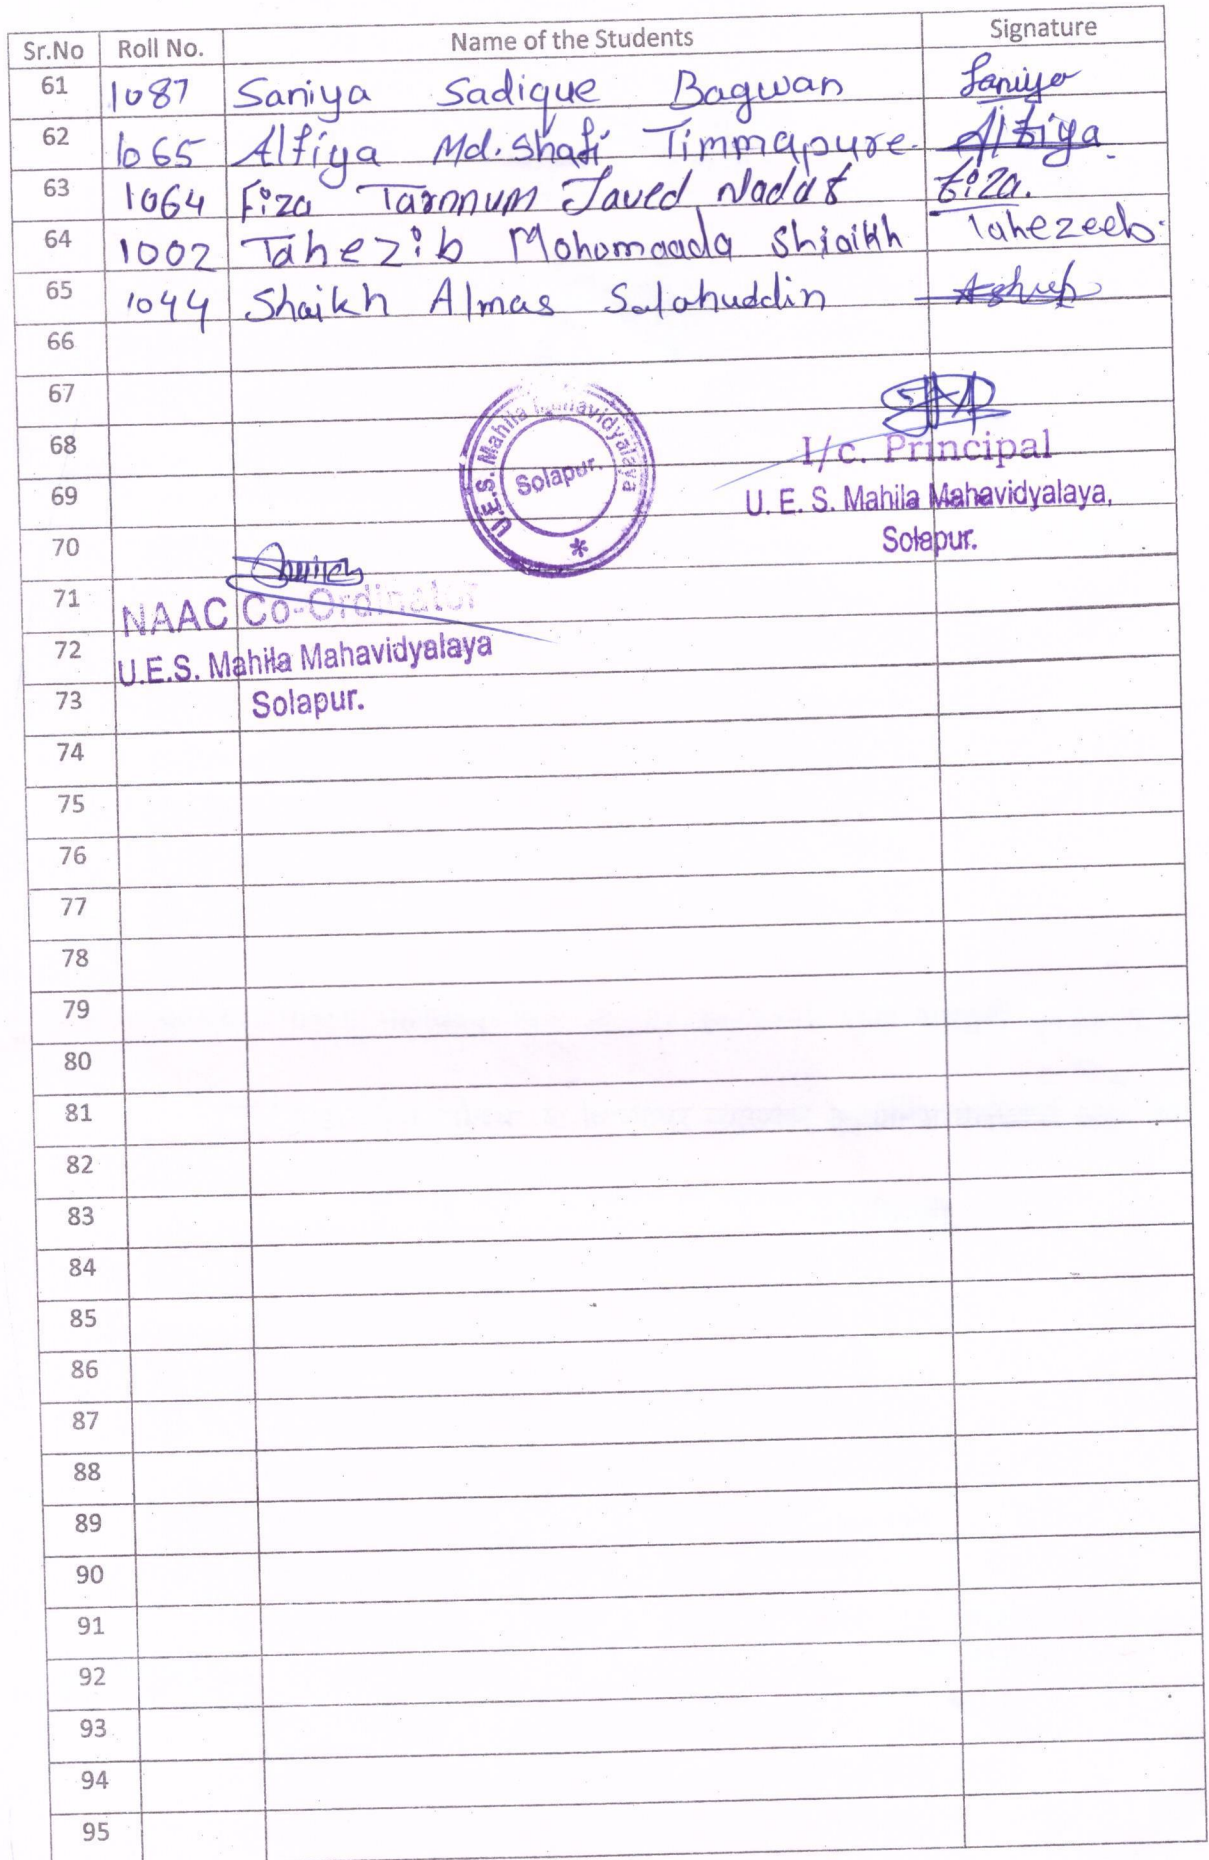 Sr.No Roll No. Name of the Students Signature
61 1087 Saniya Sadique Bagwan Saniya
62 1065 Alfiya Md. Shafi Timmapure. Alfiya.
63 1064 Fiza Tarnnum Javed Nadaf Fiza.
64 1002 Tahezib Mohomaada Shiaikh Tahezeeb.
65 1044 Shaikh Almas Salahuddin
66
67
68
69
70
71
72
73
74
75
76
77
78
79
80
81
82
83
84
85
86
87
88
89
90
91
92
93
94
95
U.E.S. Mahila Mahavidyalaya
Solapur.
*
I/c. Principal
U. E. S. Mahila Mahavidyalaya,
Solapur.
NAAC Co-Ordinator
U.E.S. Mahila Mahavidyalaya
Solapur.